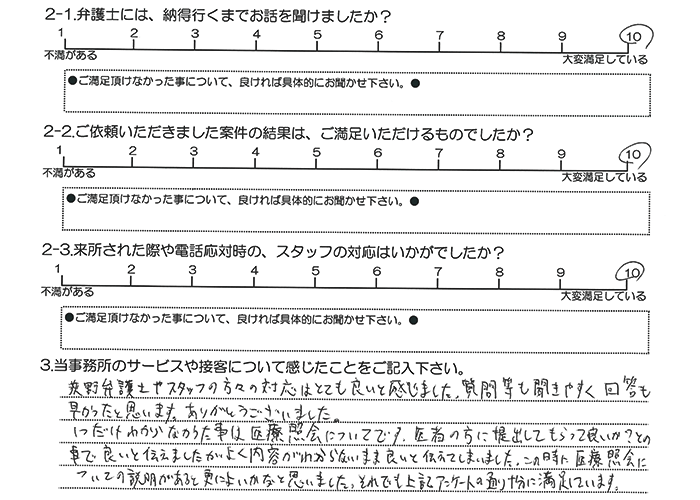 2-1.弁護士には、納得行くまでお話を聞けましたか？
1 2 3 4 5 6 7 8 9 10
不満がある 大変満足している
●ご満足頂けなかった事について、良ければ具体的にお聞かせ下さい。●
2-2.ご依頼いただきました案件の結果は、ご満足いただけるものでしたか？
1 2 3 4 5 6 7 8 9 10
不満がある 大変満足している
●ご満足頂けなかった事について、良ければ具体的にお聞かせ下さい。●
2-3.来所された際や電話応対時の、スタッフの対応はいかがでしたか？
1 2 3 4 5 6 7 8 9 10
不満がある 大変満足している
●ご満足頂けなかった事について、良ければ具体的にお聞かせ下さい。●
3.当事務所のサービスや接客について感じたことをご記入下さい。
野弁護士やスタッフの方々の対応はとても良いと感じました。質問等も聞きやすく回答も
早かったと思います。ありがとうございました。
1つだけわからなかった事は医療照会についてです。医者の方に提出してもらって良いか？との
事で良いと伝えましたがよく内容がわからないまま良いと伝えてしまいました。この時に医療照会に
ついての説明があると更によいかなと思いました。それでも上記アンケートの通り十分に満足しています。